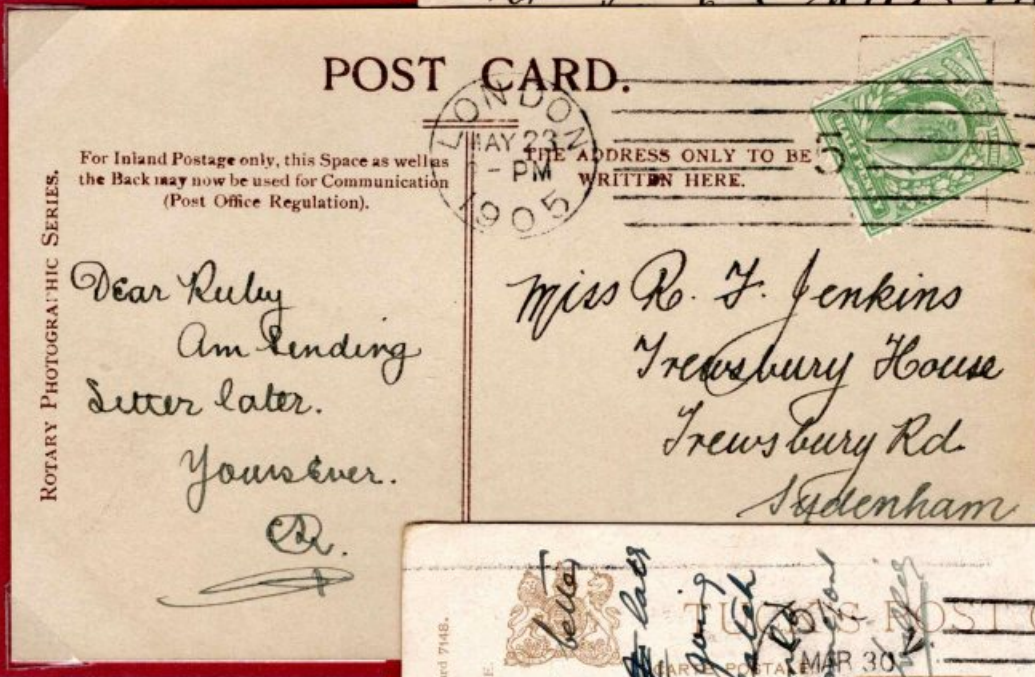 POST CARD.
LONDON
MAY 23
- PM
1905
5
For Inland Postage only, this Space as well as
the Back may now be used for Communication
(Post Office Regulation).
THE ADDRESS ONLY TO BE
WRITTEN HERE.
ROTARY PHOTOGRAPHIC SERIES.
Dear Ruby
Am Sending
Letter later.
Yours Ever.
Miss R. F. Jenkins
Trewsbury House
Trewsbury Rd
Sydenham
TUCK'S POST C
CARTE POSTALE
MAR 30
rd 7148.